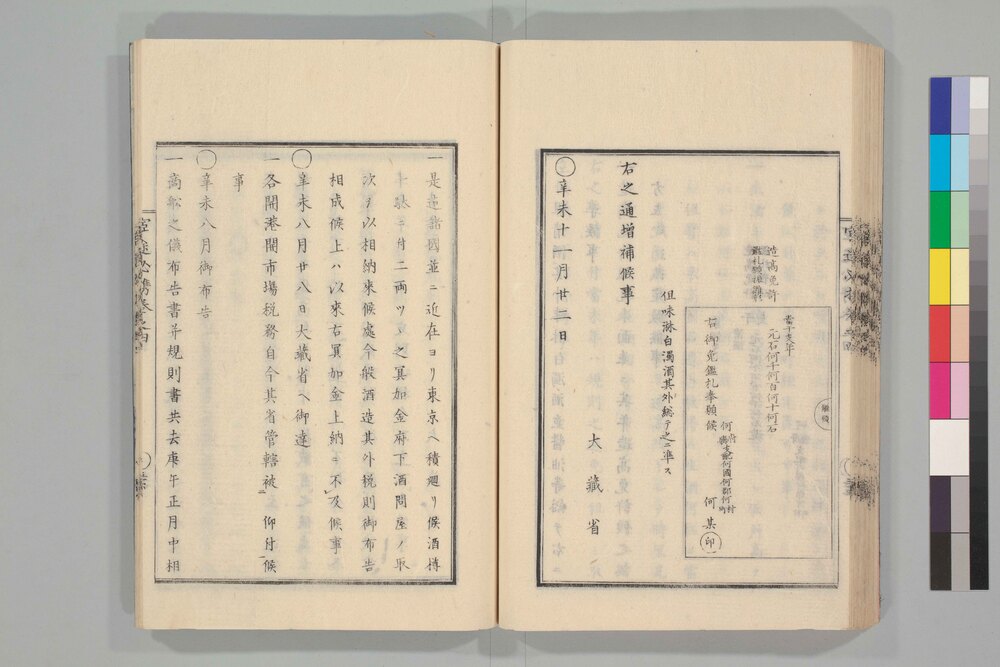 造高免許
鑑札願雛形
割印
當干支年
元石何千何百何十何石
右御免鑑札奉願候
何府縣支配何國何郡何村町
何某印
但味淋白濁酒其外総テ之ニ準ス
右之通增補候事
大藏省
〇辛未十一月廿二日
一是迄諸國並ニ近在ヨリ東京ヘ積廻リ候酒樽
十駄ニ付二両ツヽ之冥加金府下酒問屋ノ取
次ヲ以相納來候處今般酒造其外税則御布告
相成候上ハ以來右冥加金上納ニ不及候事
〇辛未八月廿八日大藏省ヘ御達
一各開港開市場税務自今其省管轄被仰付候
事
〇辛未八月御布告
一商船之儀布告書并規則書共去庚午正月中相